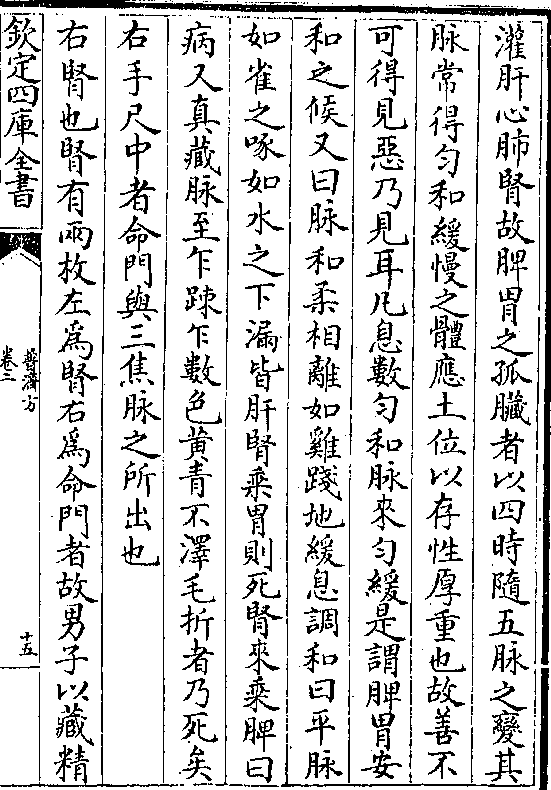 灌肝心肺腎故脾胃之孤臟者以四時隨五脉之變其
脉常得勻和緩慢之體應土位以存性厚重也故善不
可得見惡乃見耳凡息數勻和脉來勻緩是謂脾胃安
和之候又曰脉和柔相離如雞踐地緩息調和曰平脉
如雀之啄如水之下漏皆肝腎乘胃則死腎來乘脾曰
病又真藏脉至乍踈乍數色黄青不澤毛折者乃死矣
右手尺中者命門與三焦脉之所出也
右腎也腎有兩枚左為腎右為命門者故男子以藏精
欽定四庫全書
普濟方
卷三
十五